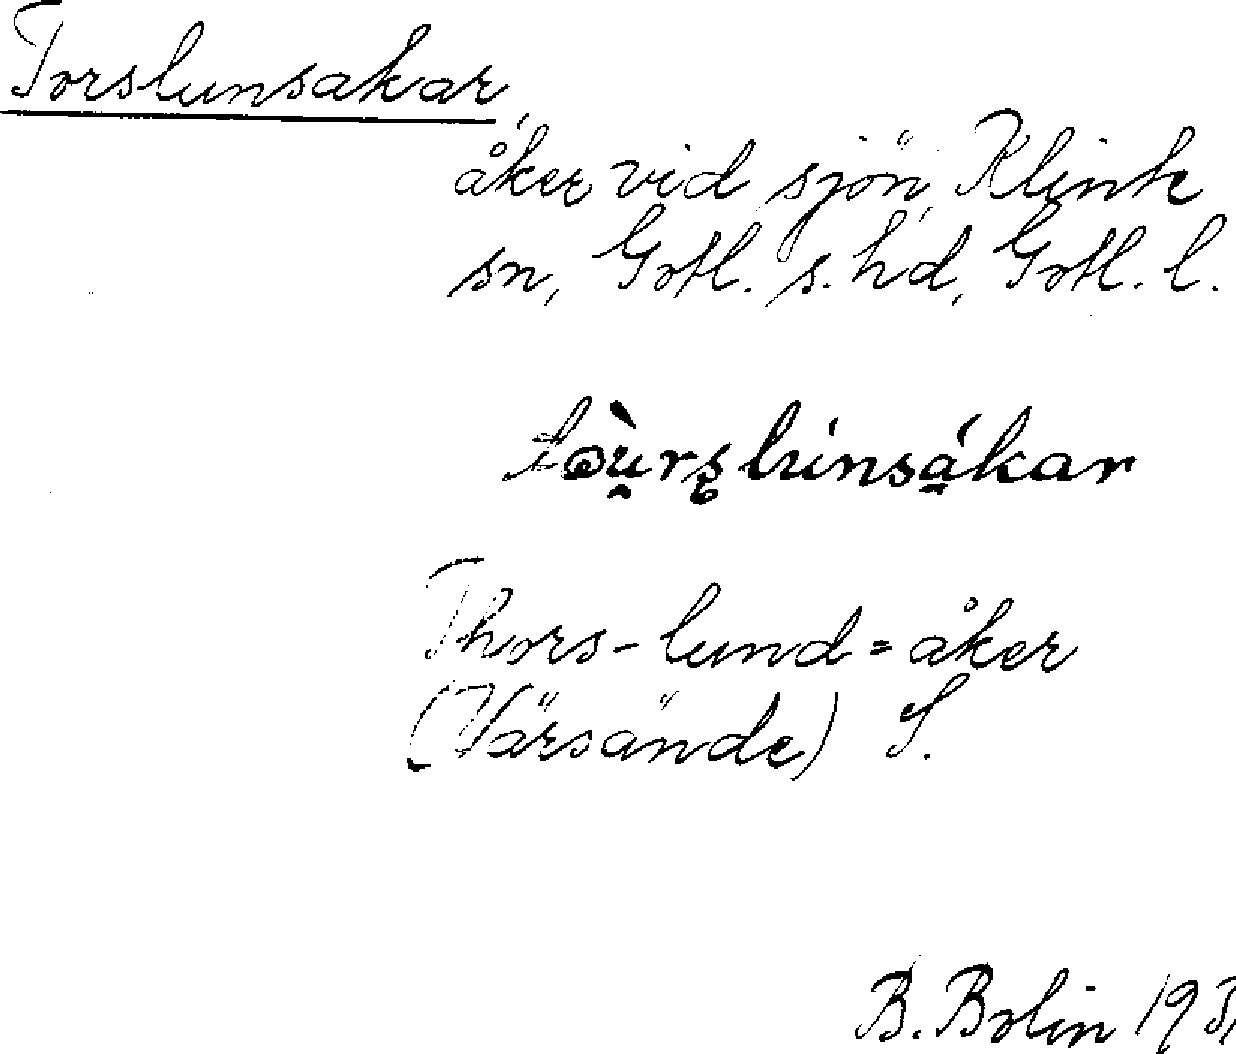 Torslunsakar,
åker vid sjön, Klinte
sn, Gotl. s. hd, Gotl. l.
Thors-lund=åker
(Värsände) S.
B. Bolin